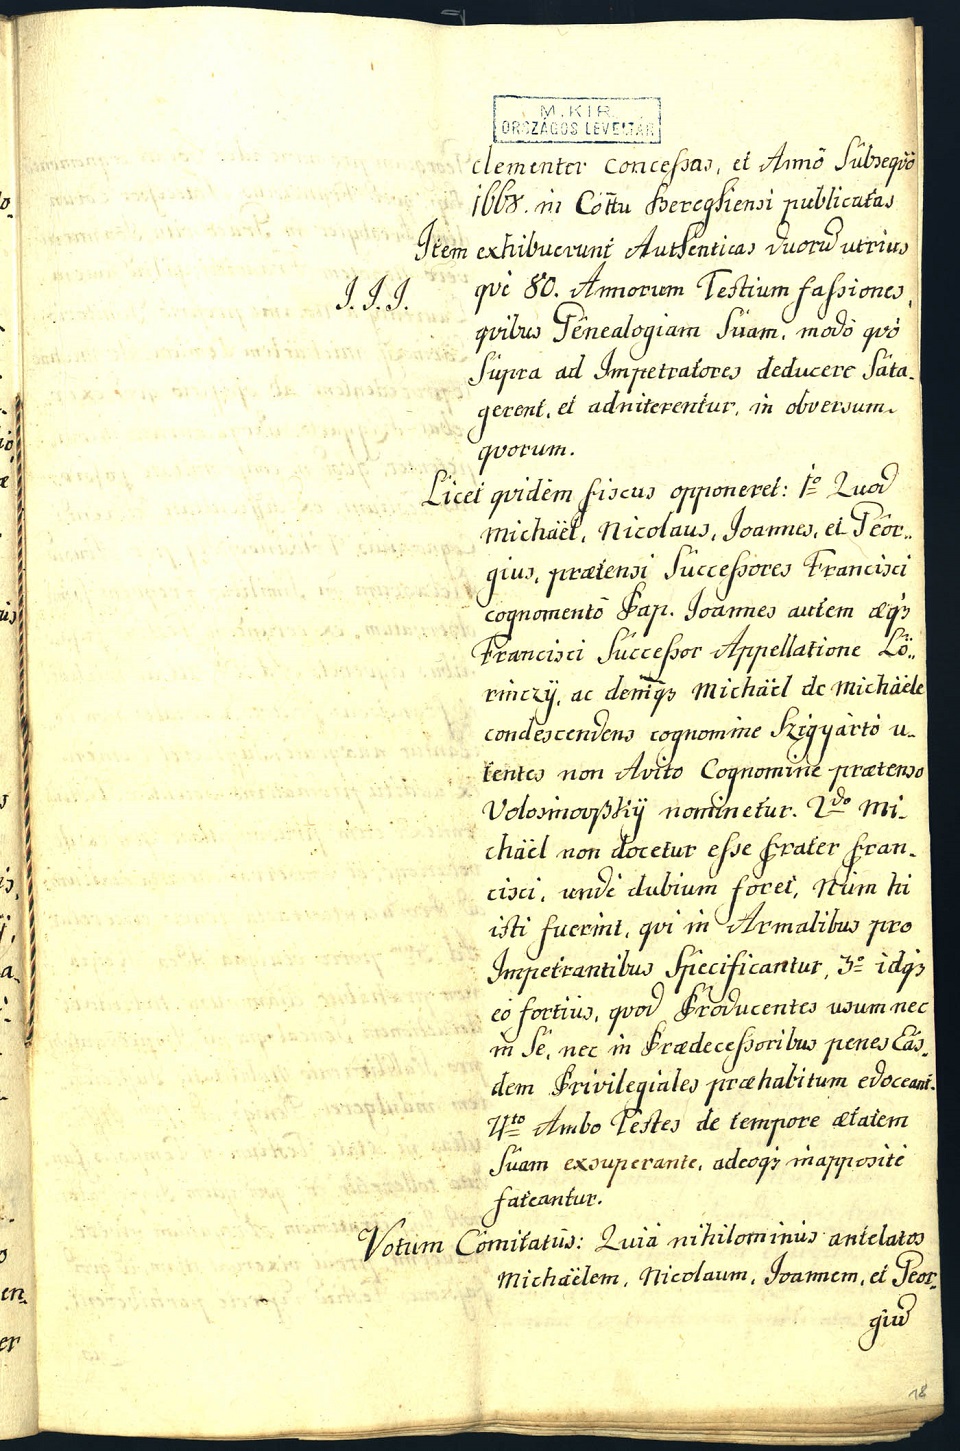 M. KIR.
ORSZÁGOS LEVÉLTÁR
clementer concessas, et Anno Subseqvo
1668. in Cottu Bereghiensi publicatas
Item exhibuerunt Authenticas duorum utrius
J. J. J. qve 80. Annorum Testium fassiones,
qvibus Genealogiam Suam, modo qvo
Supra ad Impetratores deducere Sata-
gerent, et adniterentur, in obversum
qvorum.
Licet qvidem fiscus opponeret: 1o Quod
Michäel, Nicolaus, Joannes, et Geor-
gius, prætensi Successores Francisci
cognomentô Pap. Joannes autem æq3
Francisci Successor Appellatione Lö-
rinczÿ, ac deniq3 Michäel de Michäele
condescendens cognomine Szigyàrtó u-
tentes non Avito Cognomine prætenso
Volosinovszkÿ nominetur. 2do Mi-
chäel non docetur esse frater fran-
cisci, unde dubium foret, Num hi
isti fuerint, qvi in Armalibus pro
Impetrantibus Specificantur, 3o idq3
eò fortiùs, qvod Producentes usum nec
in Se, nec in Prædecessoribus penes Eas-
dem Privilegiales præhabitum edoceant.
4to Ambo Testes de tempore ætatem
Suam exsuperante, adeoq3 inapposite
fateantur.
Votum Comitatûs: Quia nihilominus antelatos
Michäelem, Nicolaum, Joannem, et Geor-
gium
18